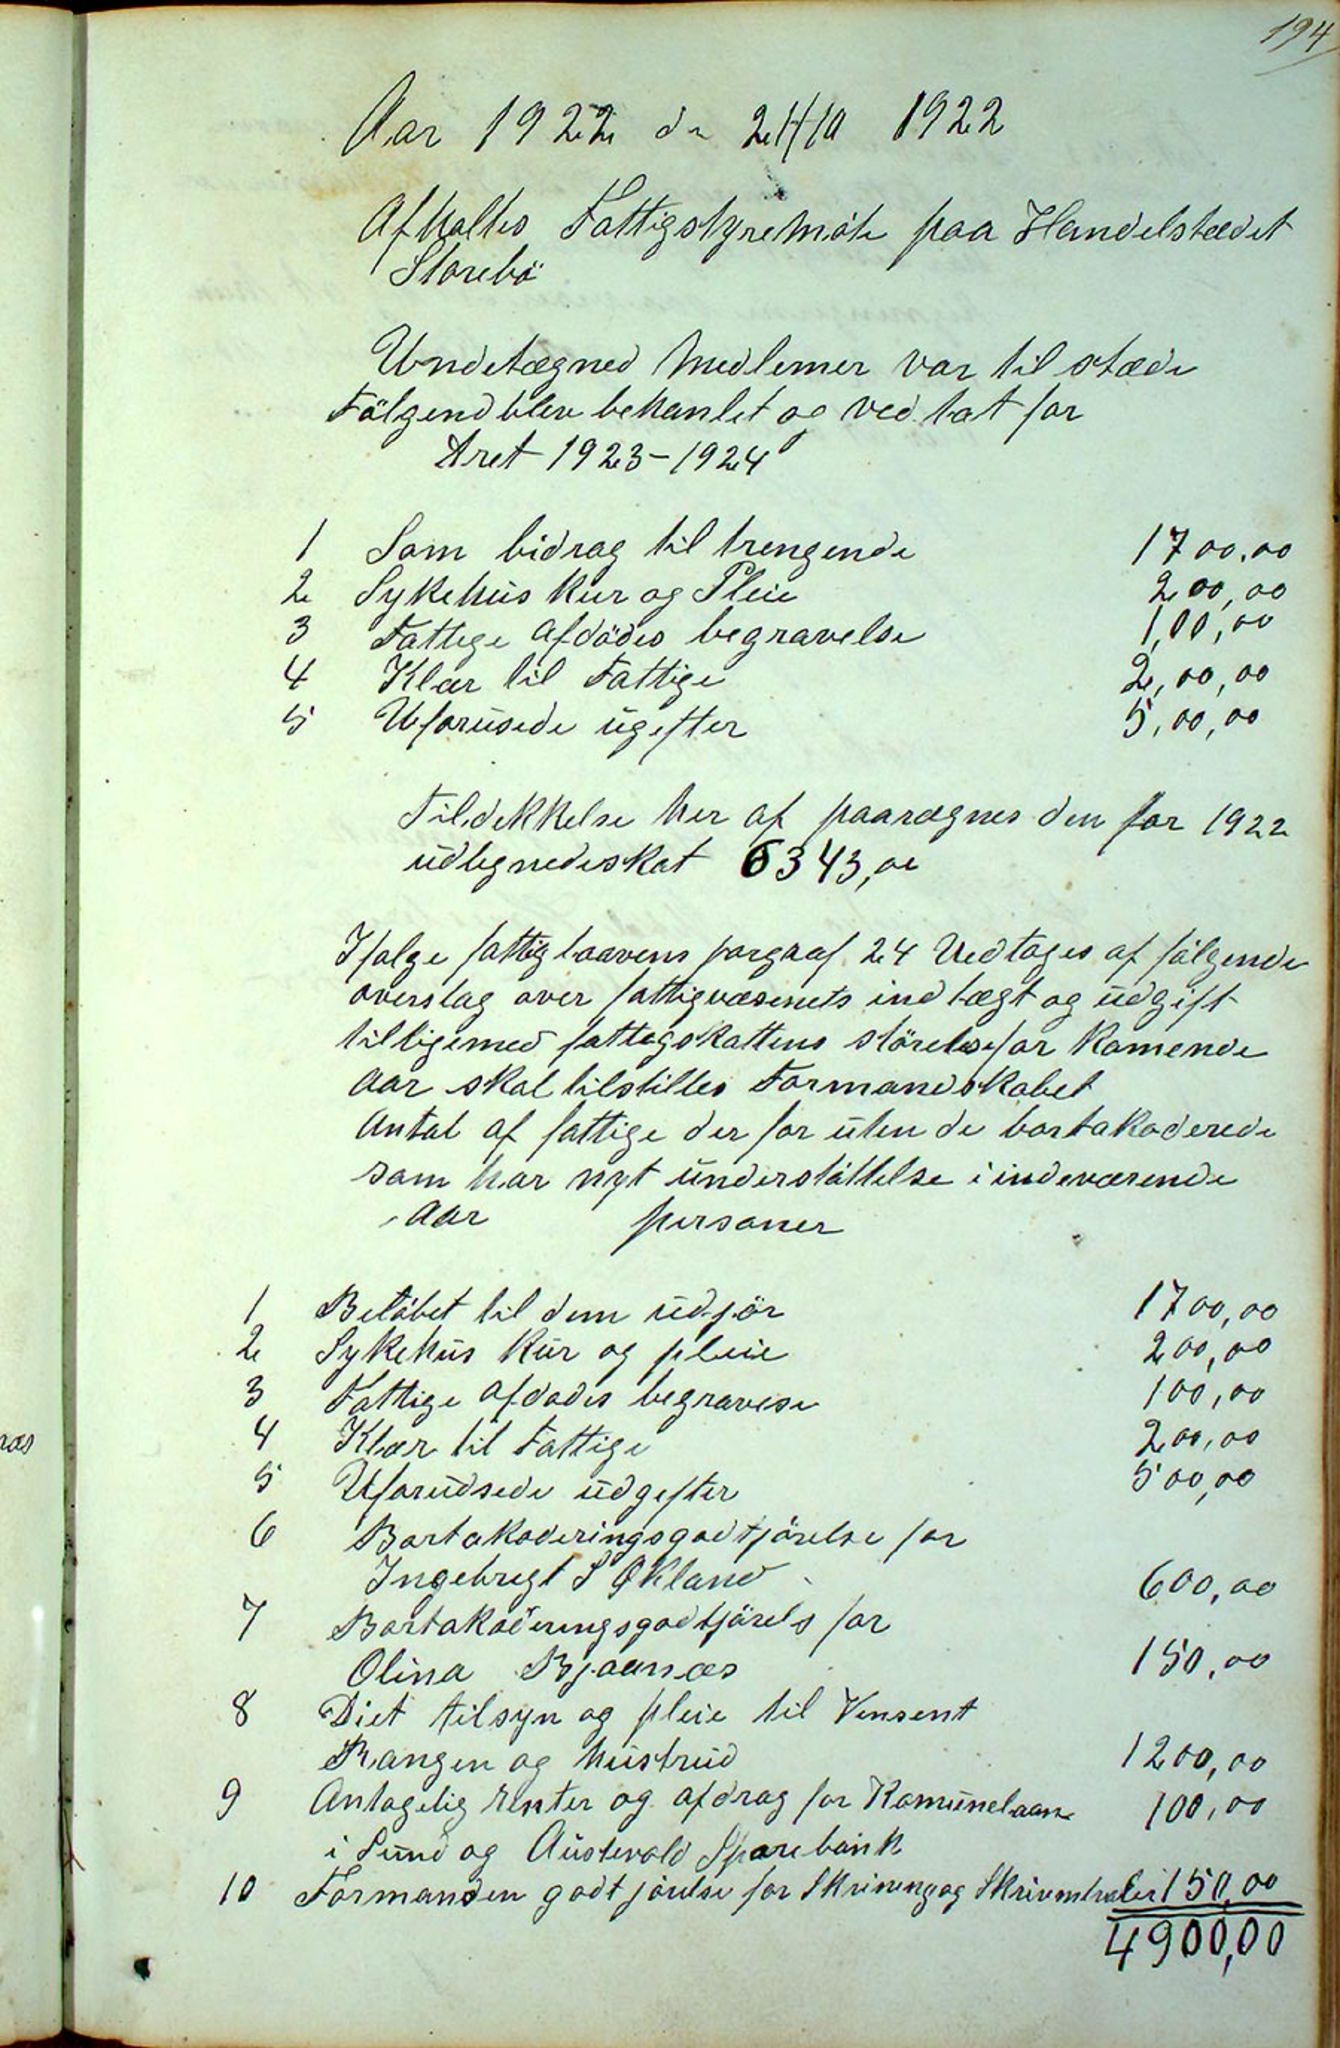 194
Aar 1922 dn 24/10 1922
Afholtes Fattigstyremöte paa Handelstædet
Storebö
Undetægned Medlemer var til stæde
Fölgend blev behanlet og ved tat for
Aret 1923-1924
1 Som bidrag til trengende 1700.00
2 Sykehus kur og Pleie 200,00
3 Fattige afdödes begravelse 1,00,00
4 Klær til Fattige 2,00,00
5 Uforusede ugefter 5,00,00
Tildekkelse her af paaregnes den for 1922
udlignedeskat 6343,oe
Ifølge fattiglaavens pargraf 24 Vedtages af fölgende
overslag over fattigvæsenets indtægt og udgift
tilligemed fattegskattens störelse for Komende
Aar skal tilstilles Formandskabet
Antal af fattige der for uten de bortakoderede
som har nyt understöttelse i indeværende
Aar personer
1 Belöbet til dem udjör 1700,00
2 Sykehus kur og pleie 200,00
3 Fattige afdødes begravese 100,00
4 Klær til Fattige 200,00
5 Uforudsede udgefter 500,00
6 Bortakoderingsgodtjörelse for
Ingebregt S Økland 600,00
7 Bortakoderingsgodtjörels for
Olina Bjaanæs 150,00
8 Diet tilsyn og pleie til Vensent
Rangen og hustrud 1200,00
9 Antagelig renter og afdrag for Komunelaan 100,00
i Sund og Austevold Sparebank
10 Formanden godtjörelse for Skrivning og 150,00
4900,00